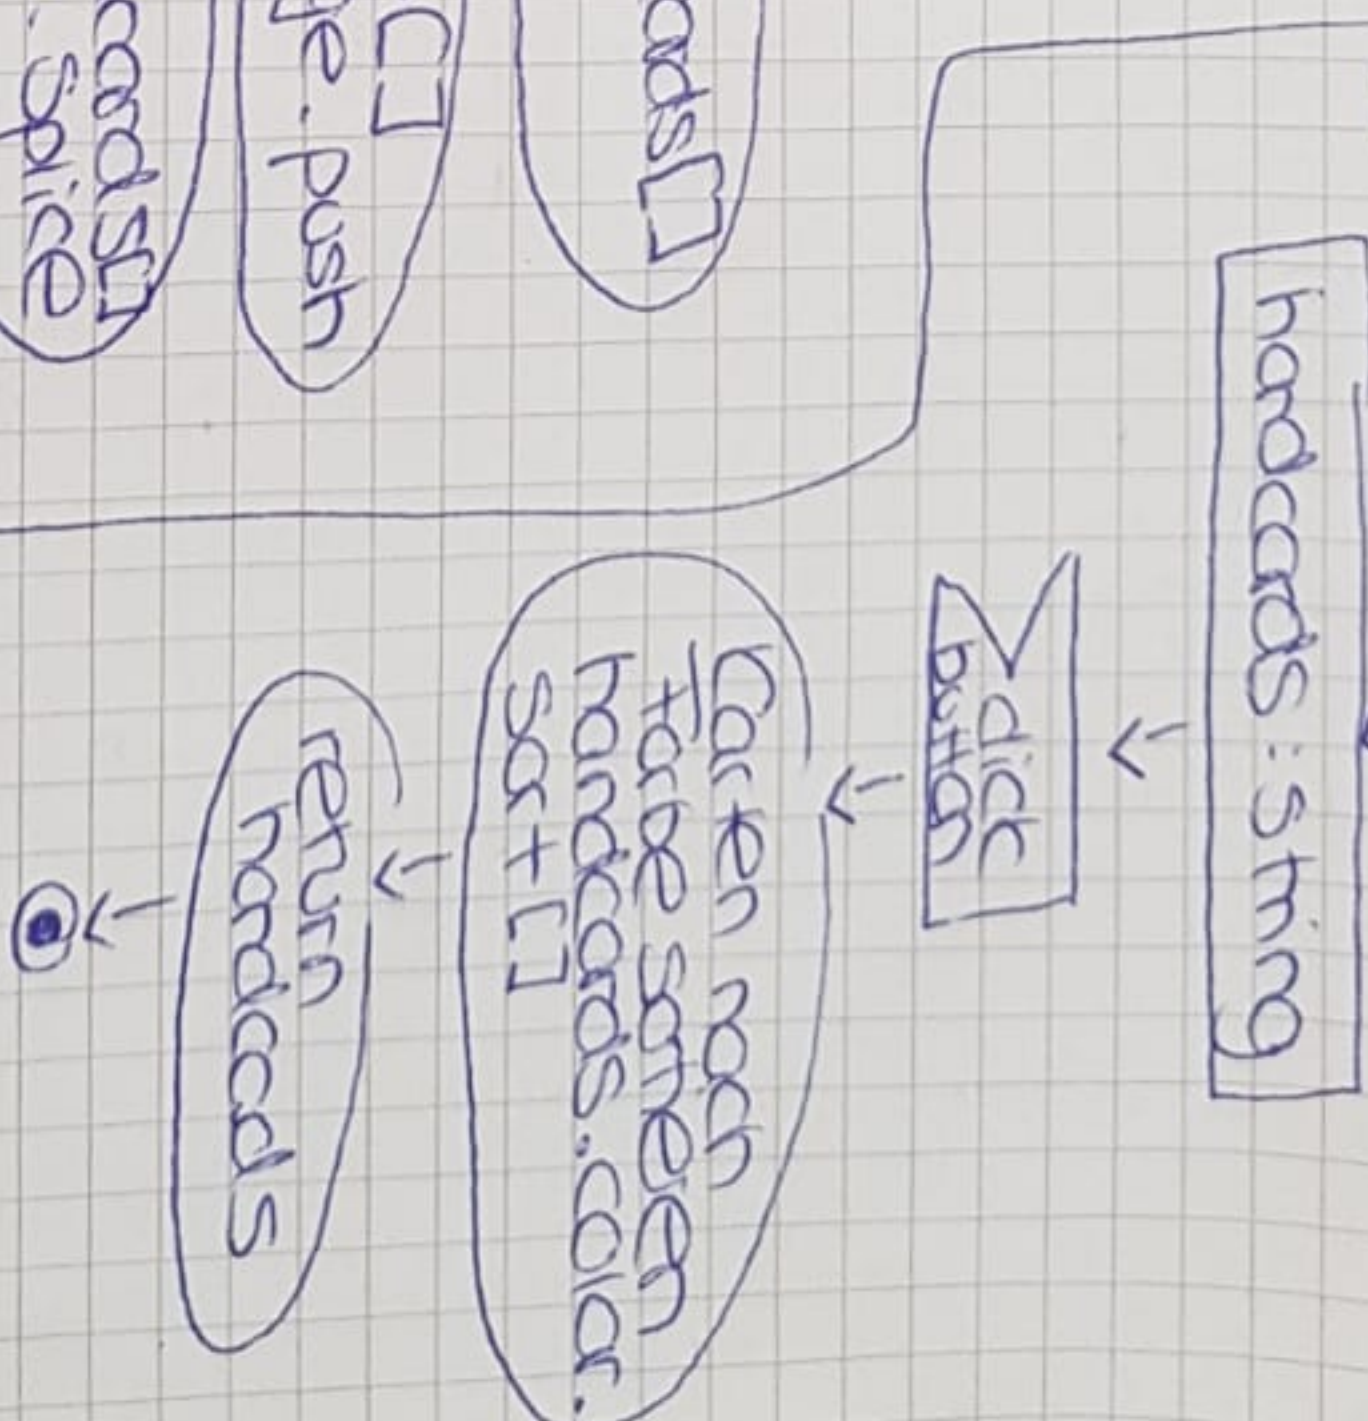 handcards : String
click
button
Karten nach
Farbe somieren
handcards.color.
sort[]
return
handccds
ards[]
[]
e.push
cards[]
.Splice